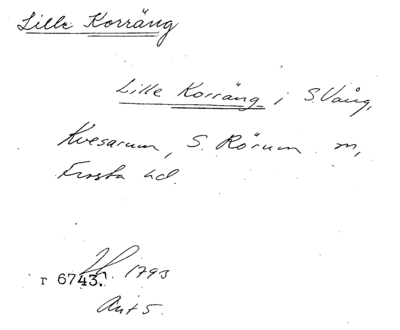 Lille Korräng
Lille Korräng i S. Vång,
Kvesarum, S. Rörum m,
Frosta hd.
r 6743. 1793
Akt 5.